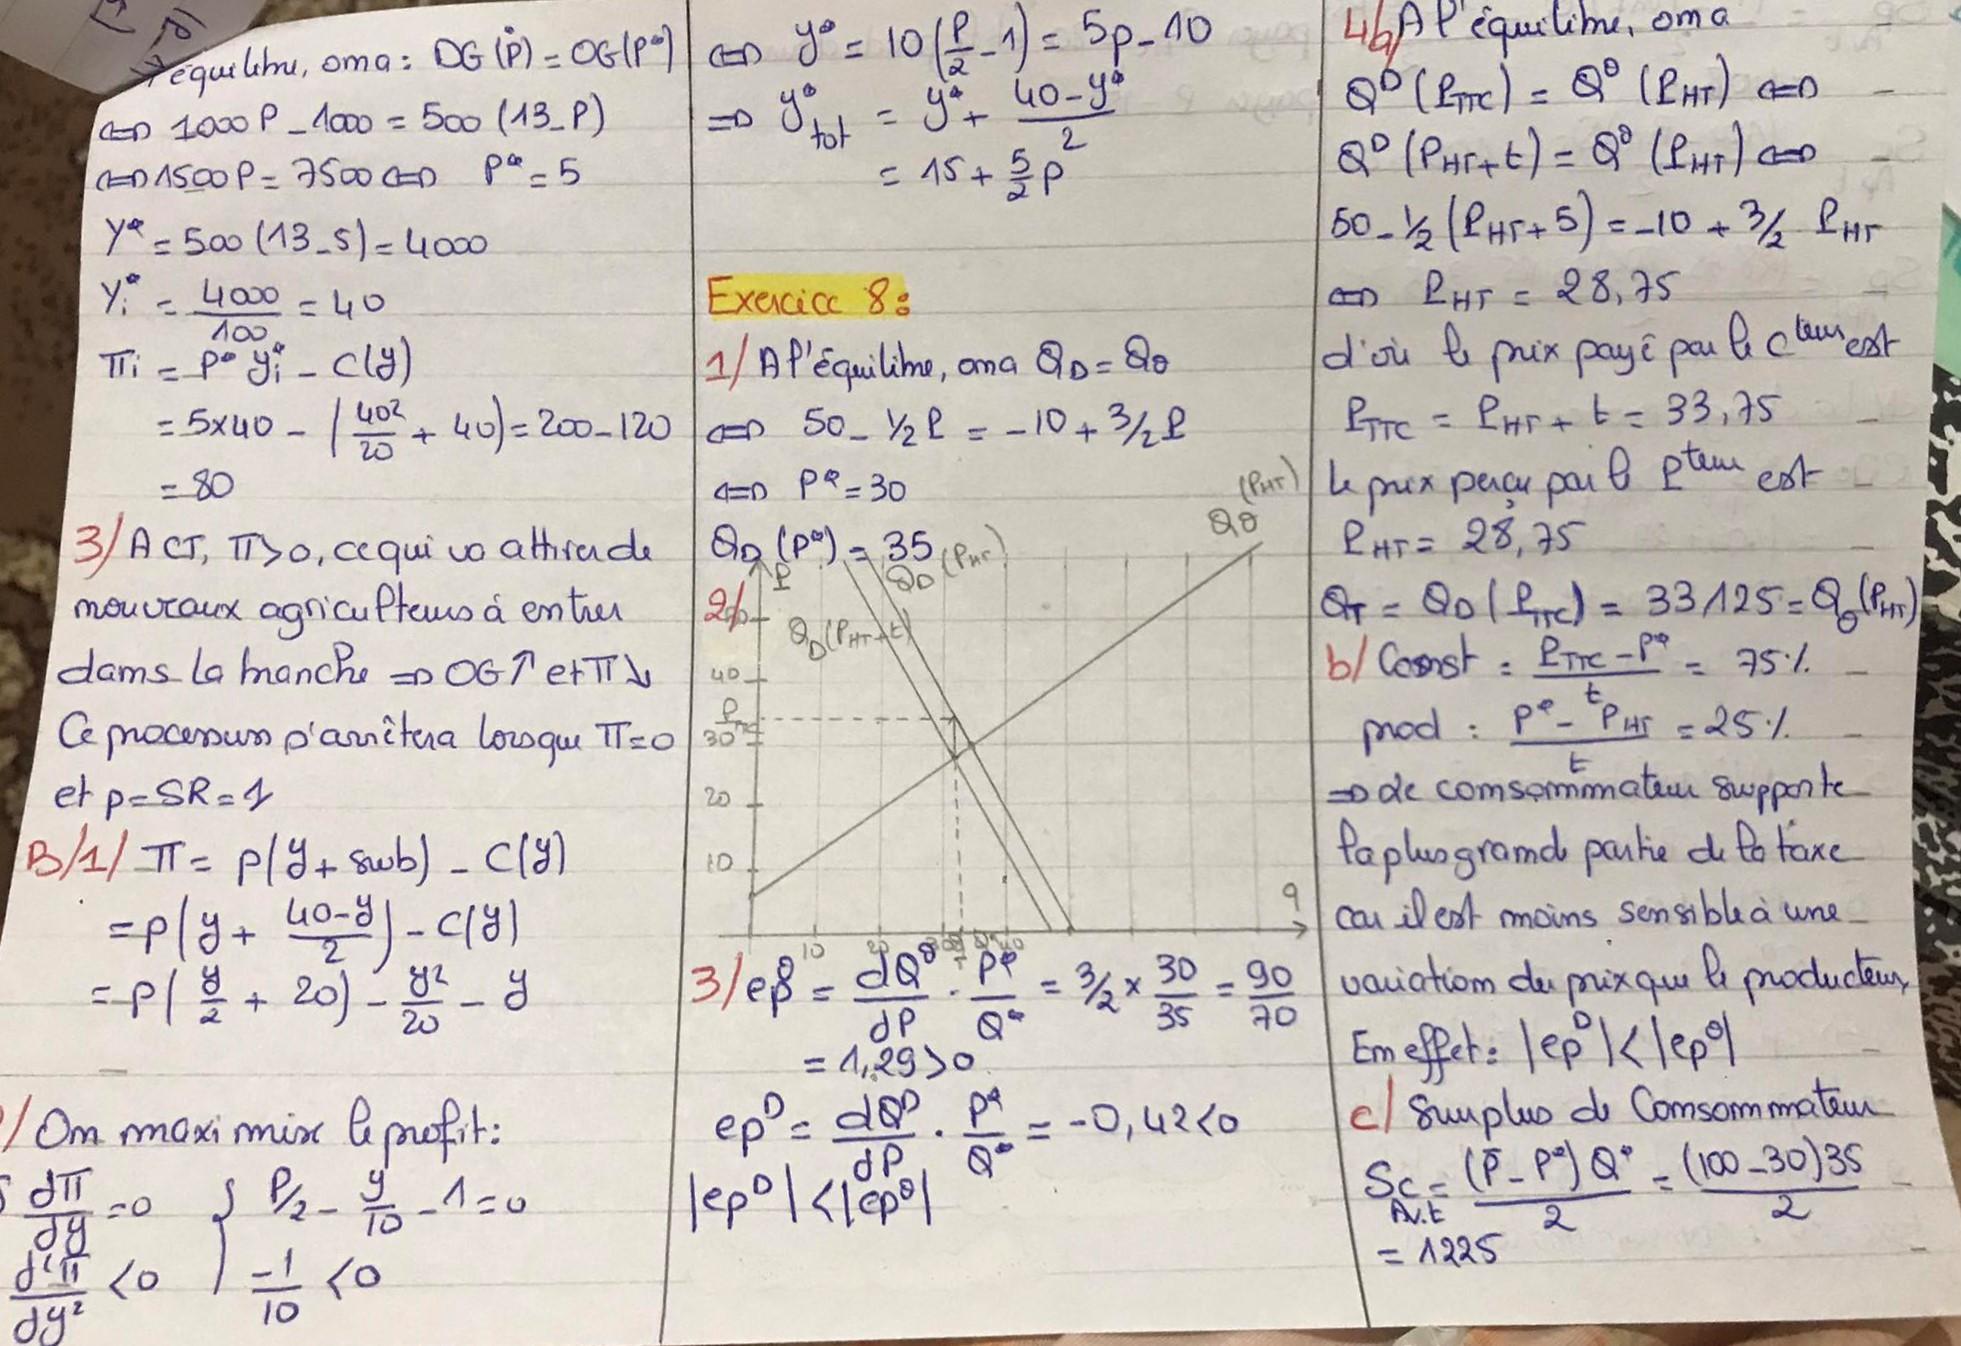 équilibre, on a : DG(P*) = OG(P*)
⇔ 1000P - 1000 = 500 (13-P)
⇔ 1500P = 7500 ⇔ P* = 5
Y* = 500 (13-5) = 4000
Yi* = 4000/100 = 40
πi = P* yi* - C(y)
= 5x40 - (40²/20 + 40) = 200-120
= 80
3/ A CT, π>0, ce qui va attirer de
nouveaux agriculteurs à entrer
dans la branche ⇒ OG↑ et π↘
Ce processus s'arrêtera lorsque π=0
et p=SR=1
B/1/ π = p(y + sub) - C(y)
= p(y + (40-y)/2) - C(y)
= p(y/2 + 20) - y²/20 - y
/ On maximise le profit :
{ dπ/dy =0 { P/2 - y/10 - 1 = 0
d²π/dy² <0 -1/10 <0
⇔ y* = 10(P/2 - 1) = 5p - 10
⇒ y*tot = y* + (40-y*)/2
= 15 + 5/2 p
Exercice 8 :
1/ A l'équilibre, on a QD = QO
⇔ 50 - 1/2 P = -10 + 3/2 P
⇔ P* = 30
QD (P*) = 35
2/
P
QD (PHT)
QO (PHT)
QD (PHT+t)
40
PTTC
30
20
10
q
10 20 30 40
3/ epO = dQO/dP . P*/Q* = 3/2 x 30/35 = 90/70
= 1,29>0
epD = dQD/dP . P*/Q* = -0,42<0
|epD| < |epO|
4a/ A l'équilibre, on a
QD (PTTC) = QO (PHT) ⇔
QD (PHT+t) = QO (PHT) ⇔
50 - 1/2 (PHT + 5) = -10 + 3/2 PHT
⇔ PHT = 28,75
d'où le prix payé par le cteur est
PTTC = PHT + t = 33,75
le prix perçu par le Pteur est
PHT = 28,75
QT = QD (PTTC) = 33,125 = QO (PHT)
b/ Const : (PTTC - P*)/t = 75%
prod : (P* - PHT)/t = 25%
⇒ Le consommateur supporte
la plus grande partie de la taxe
car il est moins sensible à une
variation du prix que le producteur,
En effet : |epD| < |epO|
c/ Surplus de Consommateur
Sc Av.t = (P̄ - P*) Q*/2 = (100-30)35/2
= 1225